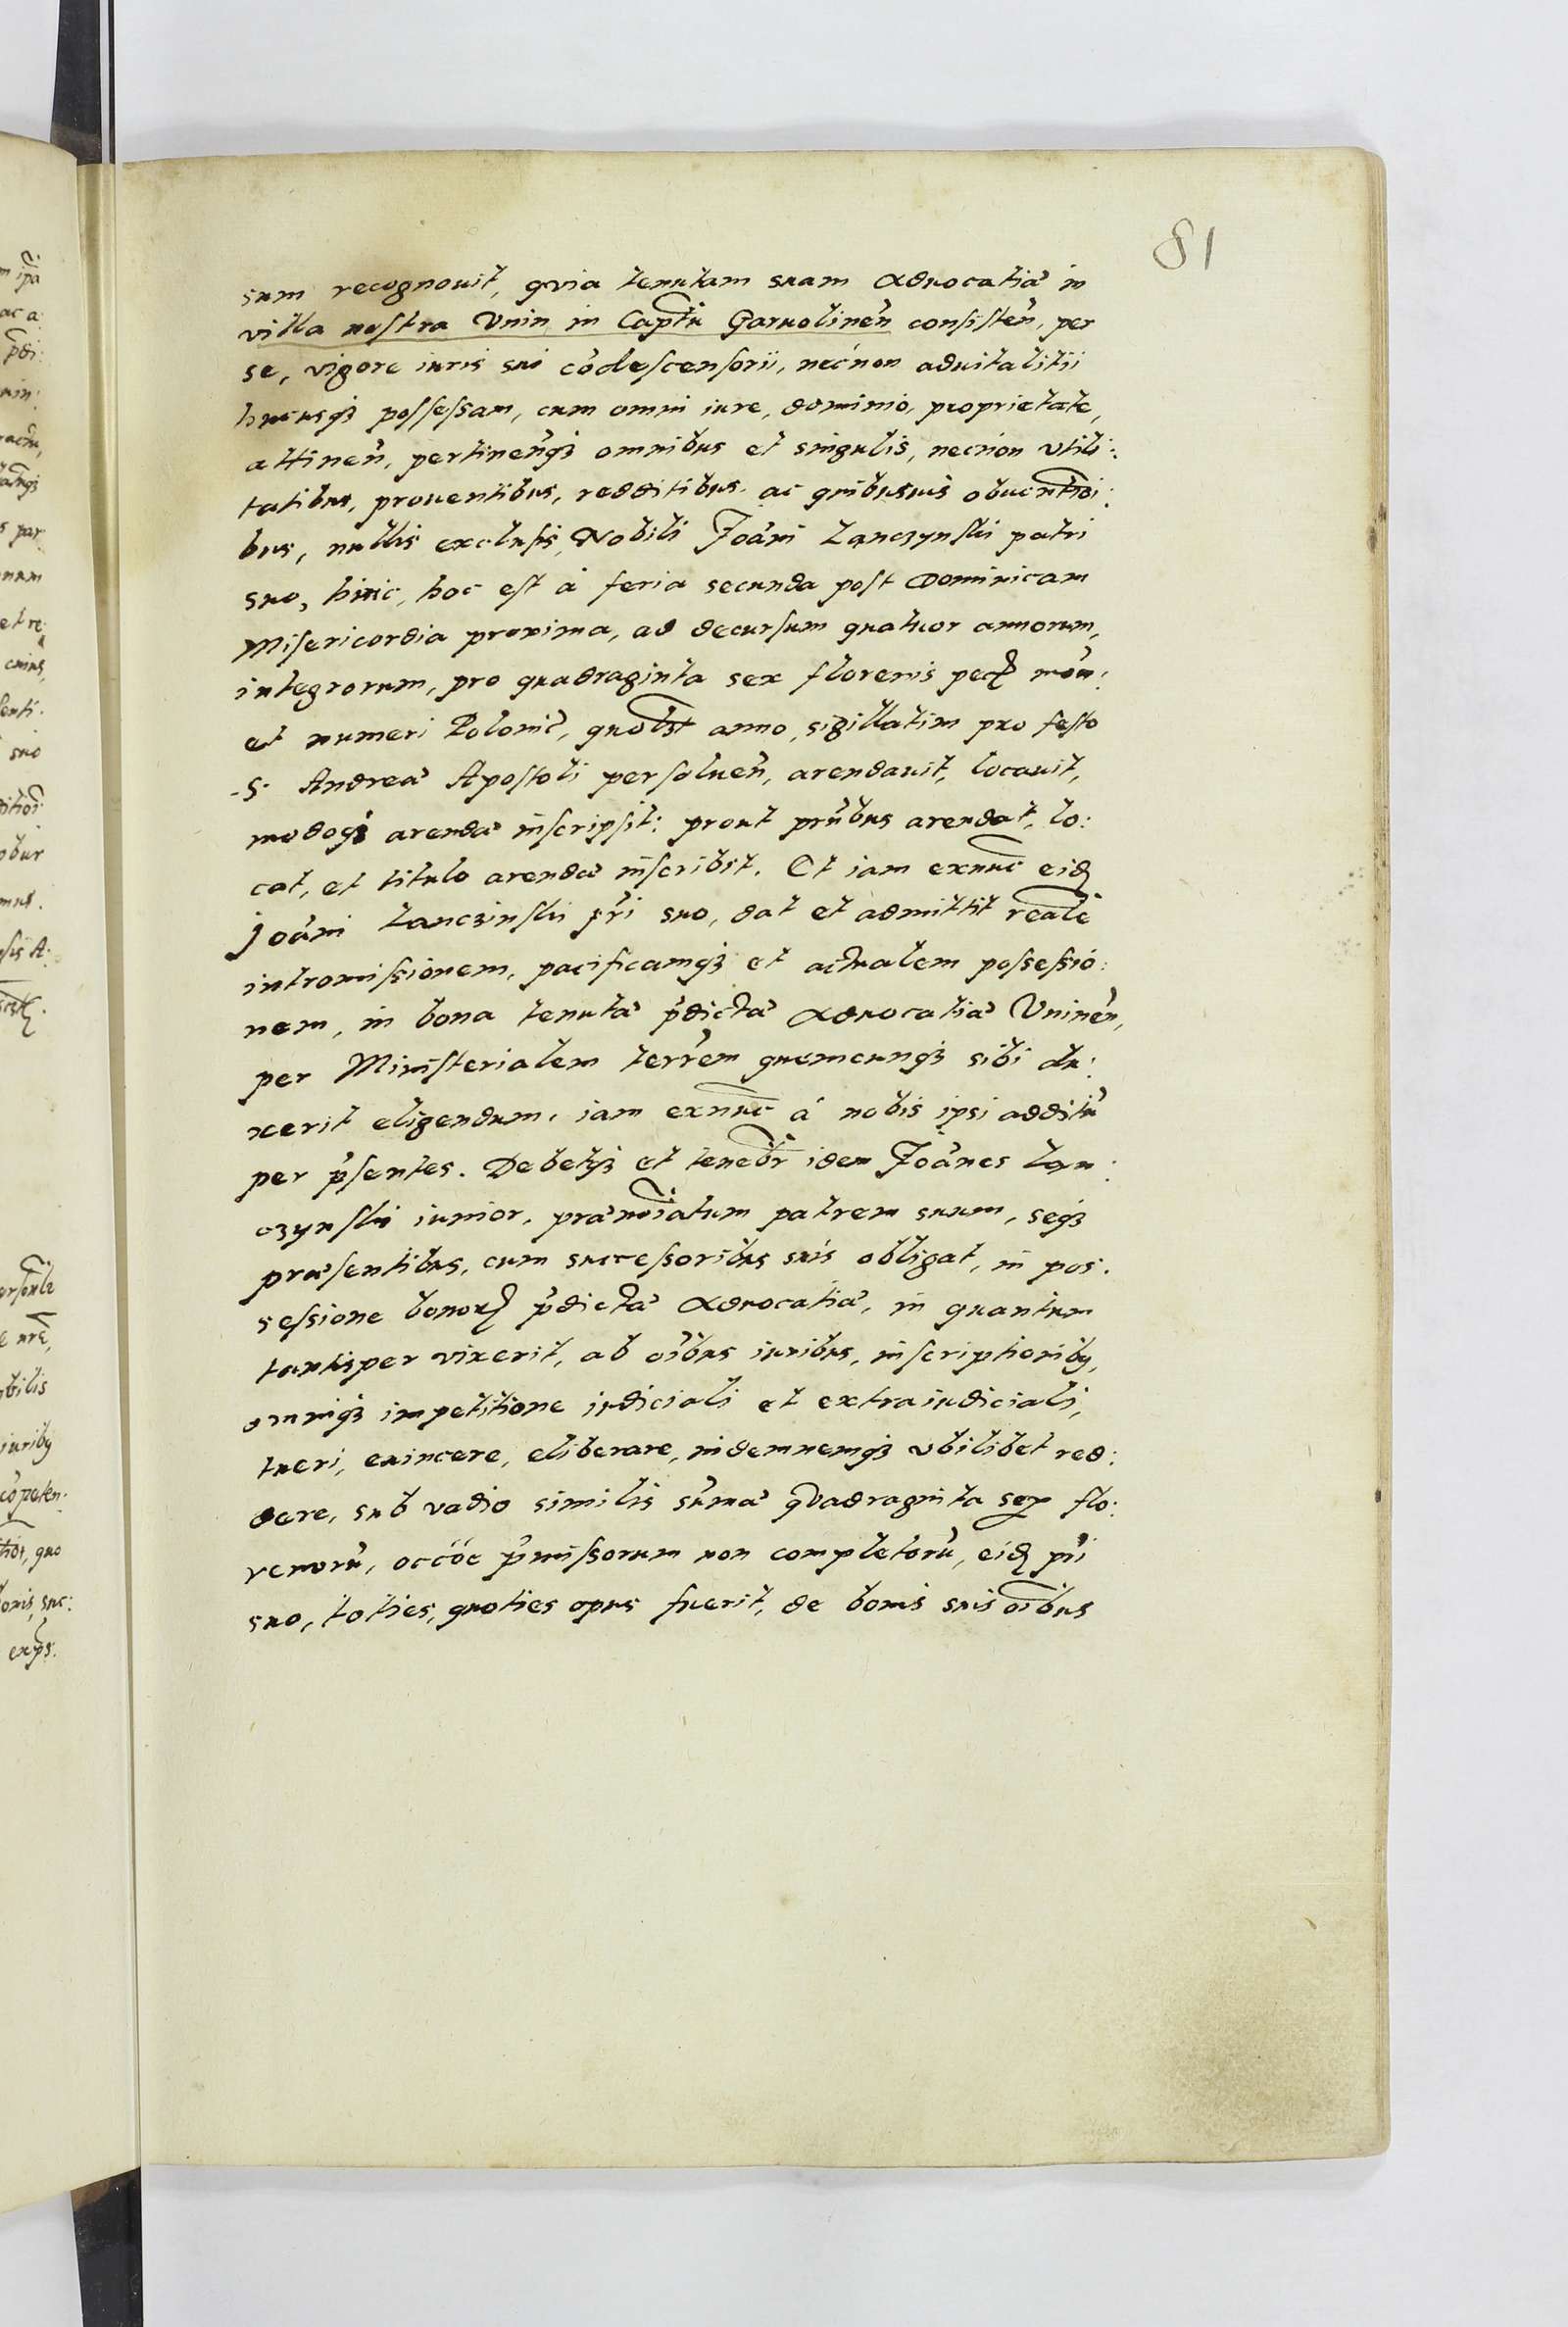 81
sum recognouit, quia tenutam suam aduocatiæ in
villa nostra Vnin in Captu Garuolineñ consisteñ, per
se, vigore iuris sui cõdescensorii, necnon aduitalitii
hucusqȝ possessam, cum omni iure, dominio, proprietate,
attineñ, pertineñqȝ omnibus et singulis, necnon vtili:
tatibus, prouentibus, redditibus, ac quibusuis obuentioi:
bus, nullis exclusis, Nobili Joãni Lanczynski patri
suo, hinc, hoc est à feria secunda post Dominicam
Misericordia proxima, ad decursum quatuor annorum,
integrorum, pro quadraginta sex florenis pecꝝ moñ:
et numeri Poloñic, quolibt anno, sigillatim pro festo
S. Andreæ Apostoli persolueñ, arendauit, locauit,
modoqȝ arendæ inscripsit: prout prñtibus arendat, lo:
cat, et titulo arendæ inscribit. Et iam exnunc eidꝫ
Joãni Lanczinski pri suo, dat et admittit realẽ
intromissionem, pacificamqȝ et actualem possessio:
nem, in bona tenutæ p̃dictæ aduocatiæ Vnineñ,
per Ministerialem terrem quemcunqȝ sibi du:
xerit eligendum, iam exnunc à nobis ipsi additũ
per p̃sentes. Debetqȝ et tenebr idem Joãnes Lan:
czynski iunior, prænoiatum patrem suum, seqȝ
præsentibus, cum successoribus suis obligat, in pos:
sessione bonoꝝ p̃dictæ aduocatiæ, in quantum
tantisper vixerit, ab oibus iuribus, inscriptionibꝰ,
omniqȝ impetitione iudiciali et extraiudiciali,
tueri, euincere, eliberare, indemnemqȝ vbilibet red:
dere, sub vadio similis sum̃æ quadraginta sex flo:
renorũ, occõe p̃missorum non completorũ, eidꝫ pri
suo, toties, quoties opus fuerit, de bonis suis oibus